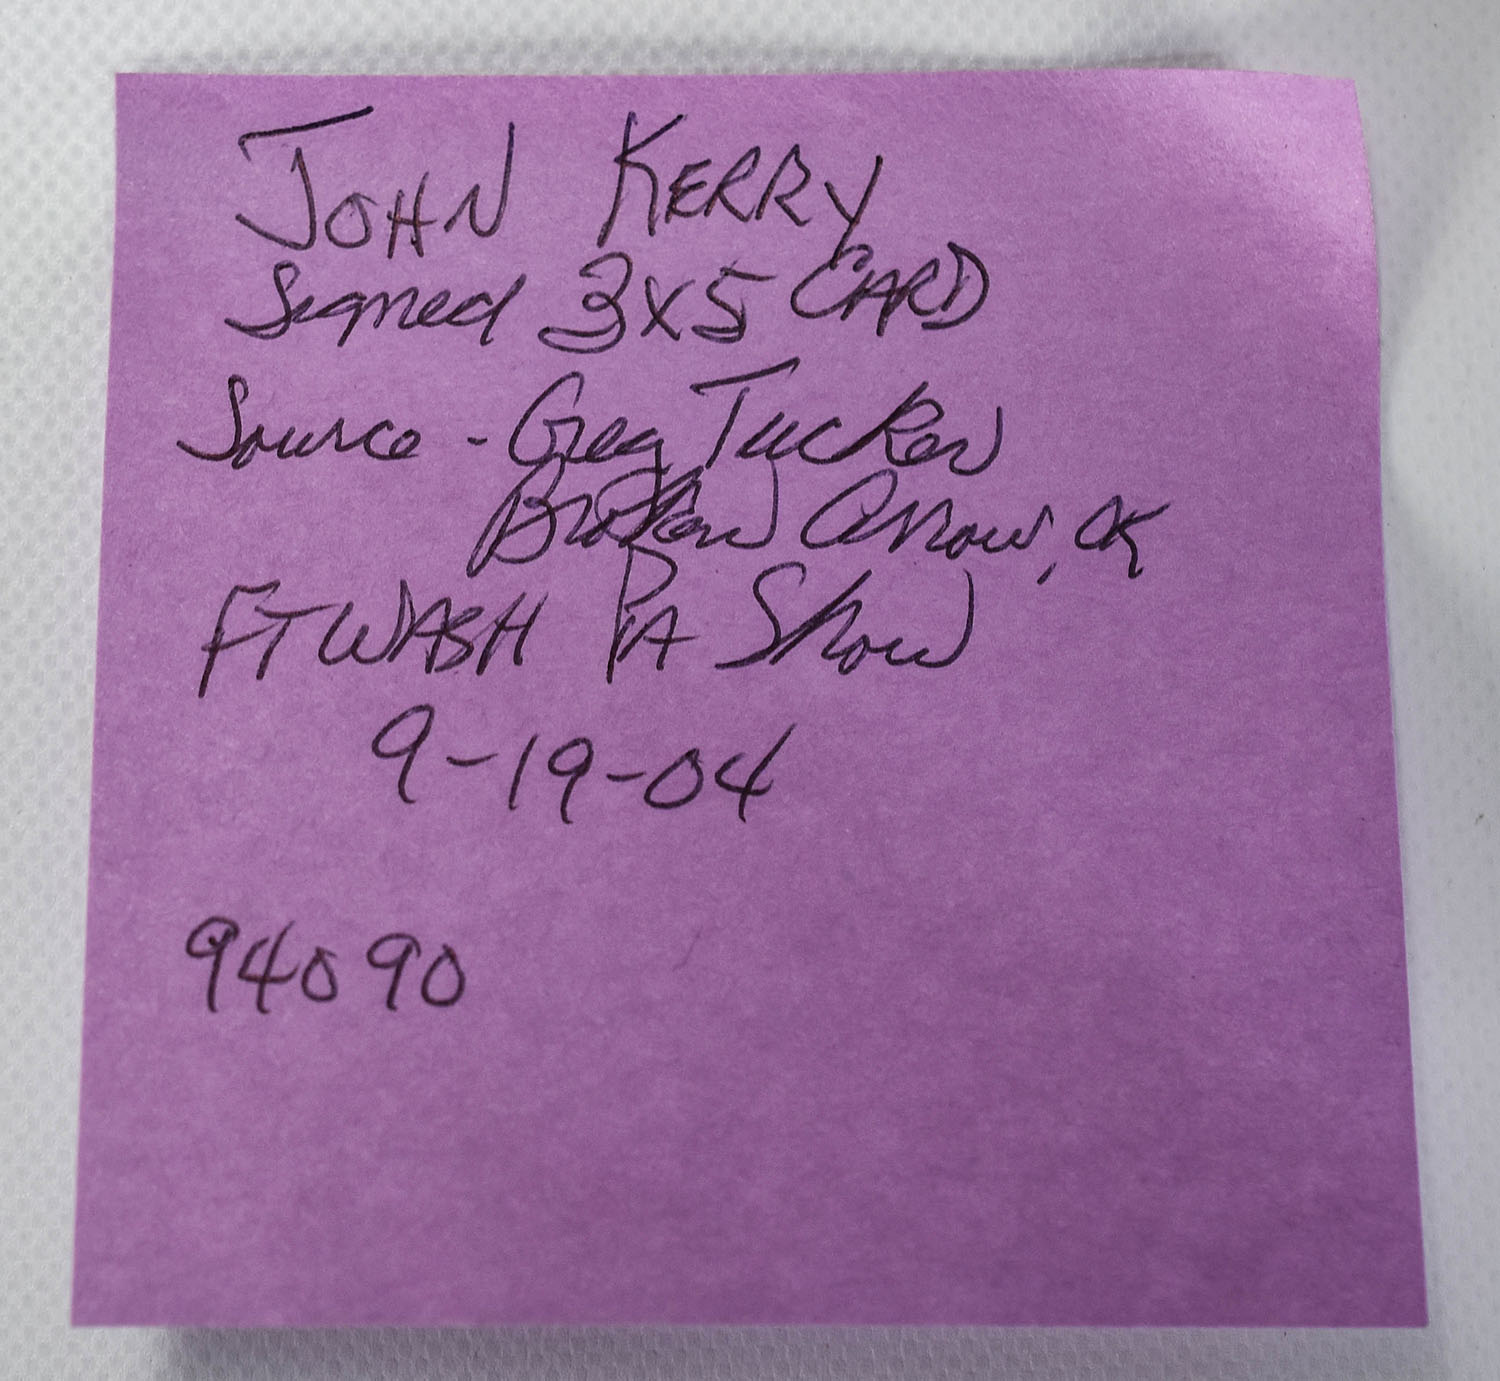 JOHN KERRY
Signed 3x5 CARD
Source - Greg Tucker
Broken Arrow, OK
FT WASH PA Show
9-19-04
94090